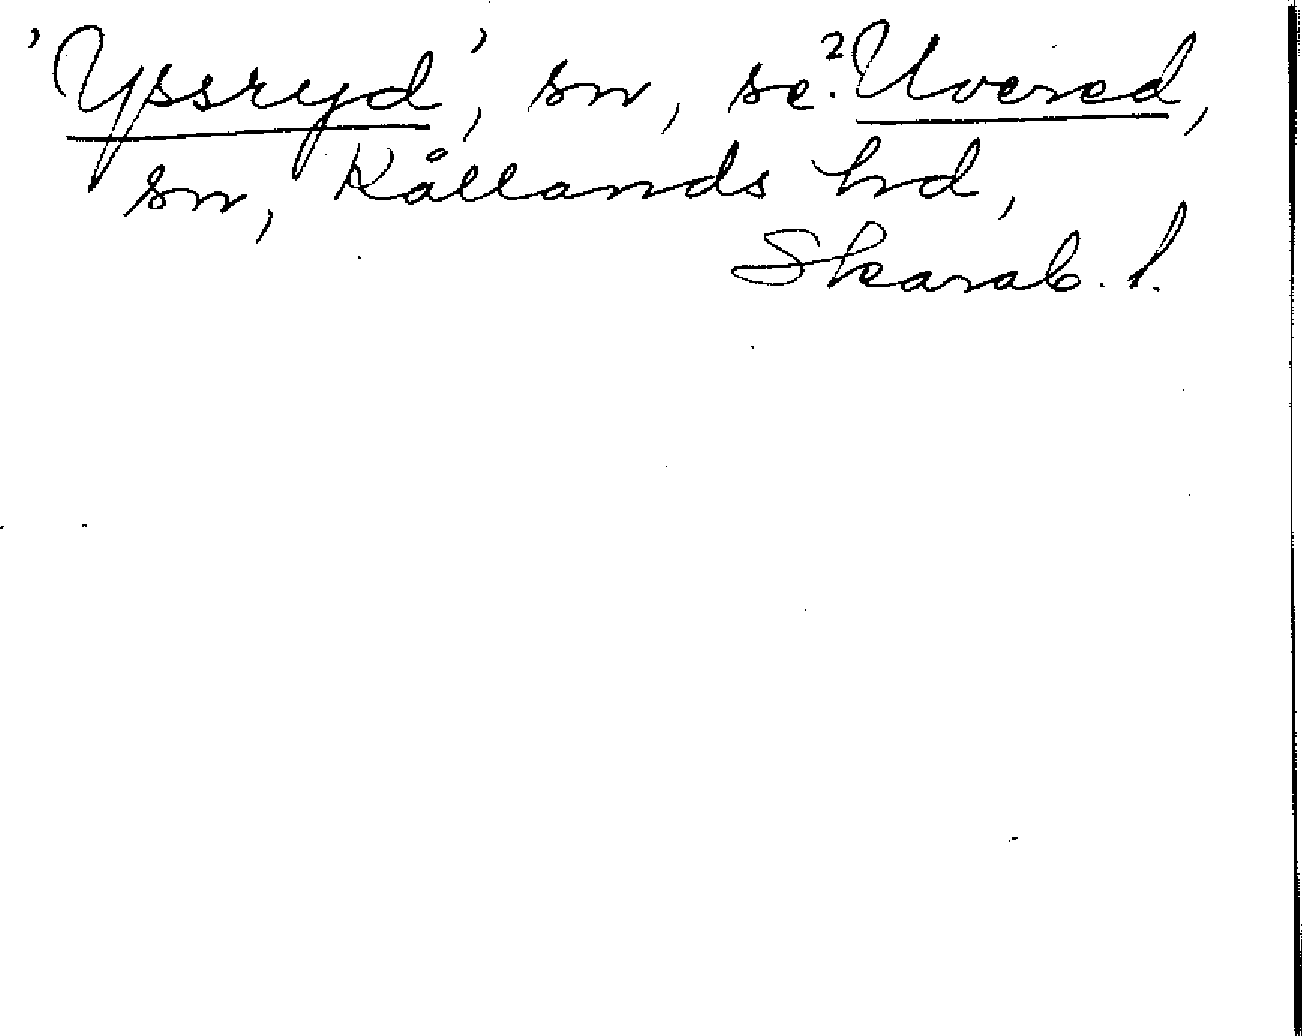 'Yssryd', sn, se ²Uvered,
sn, Kållands hd,
Skarab. l.